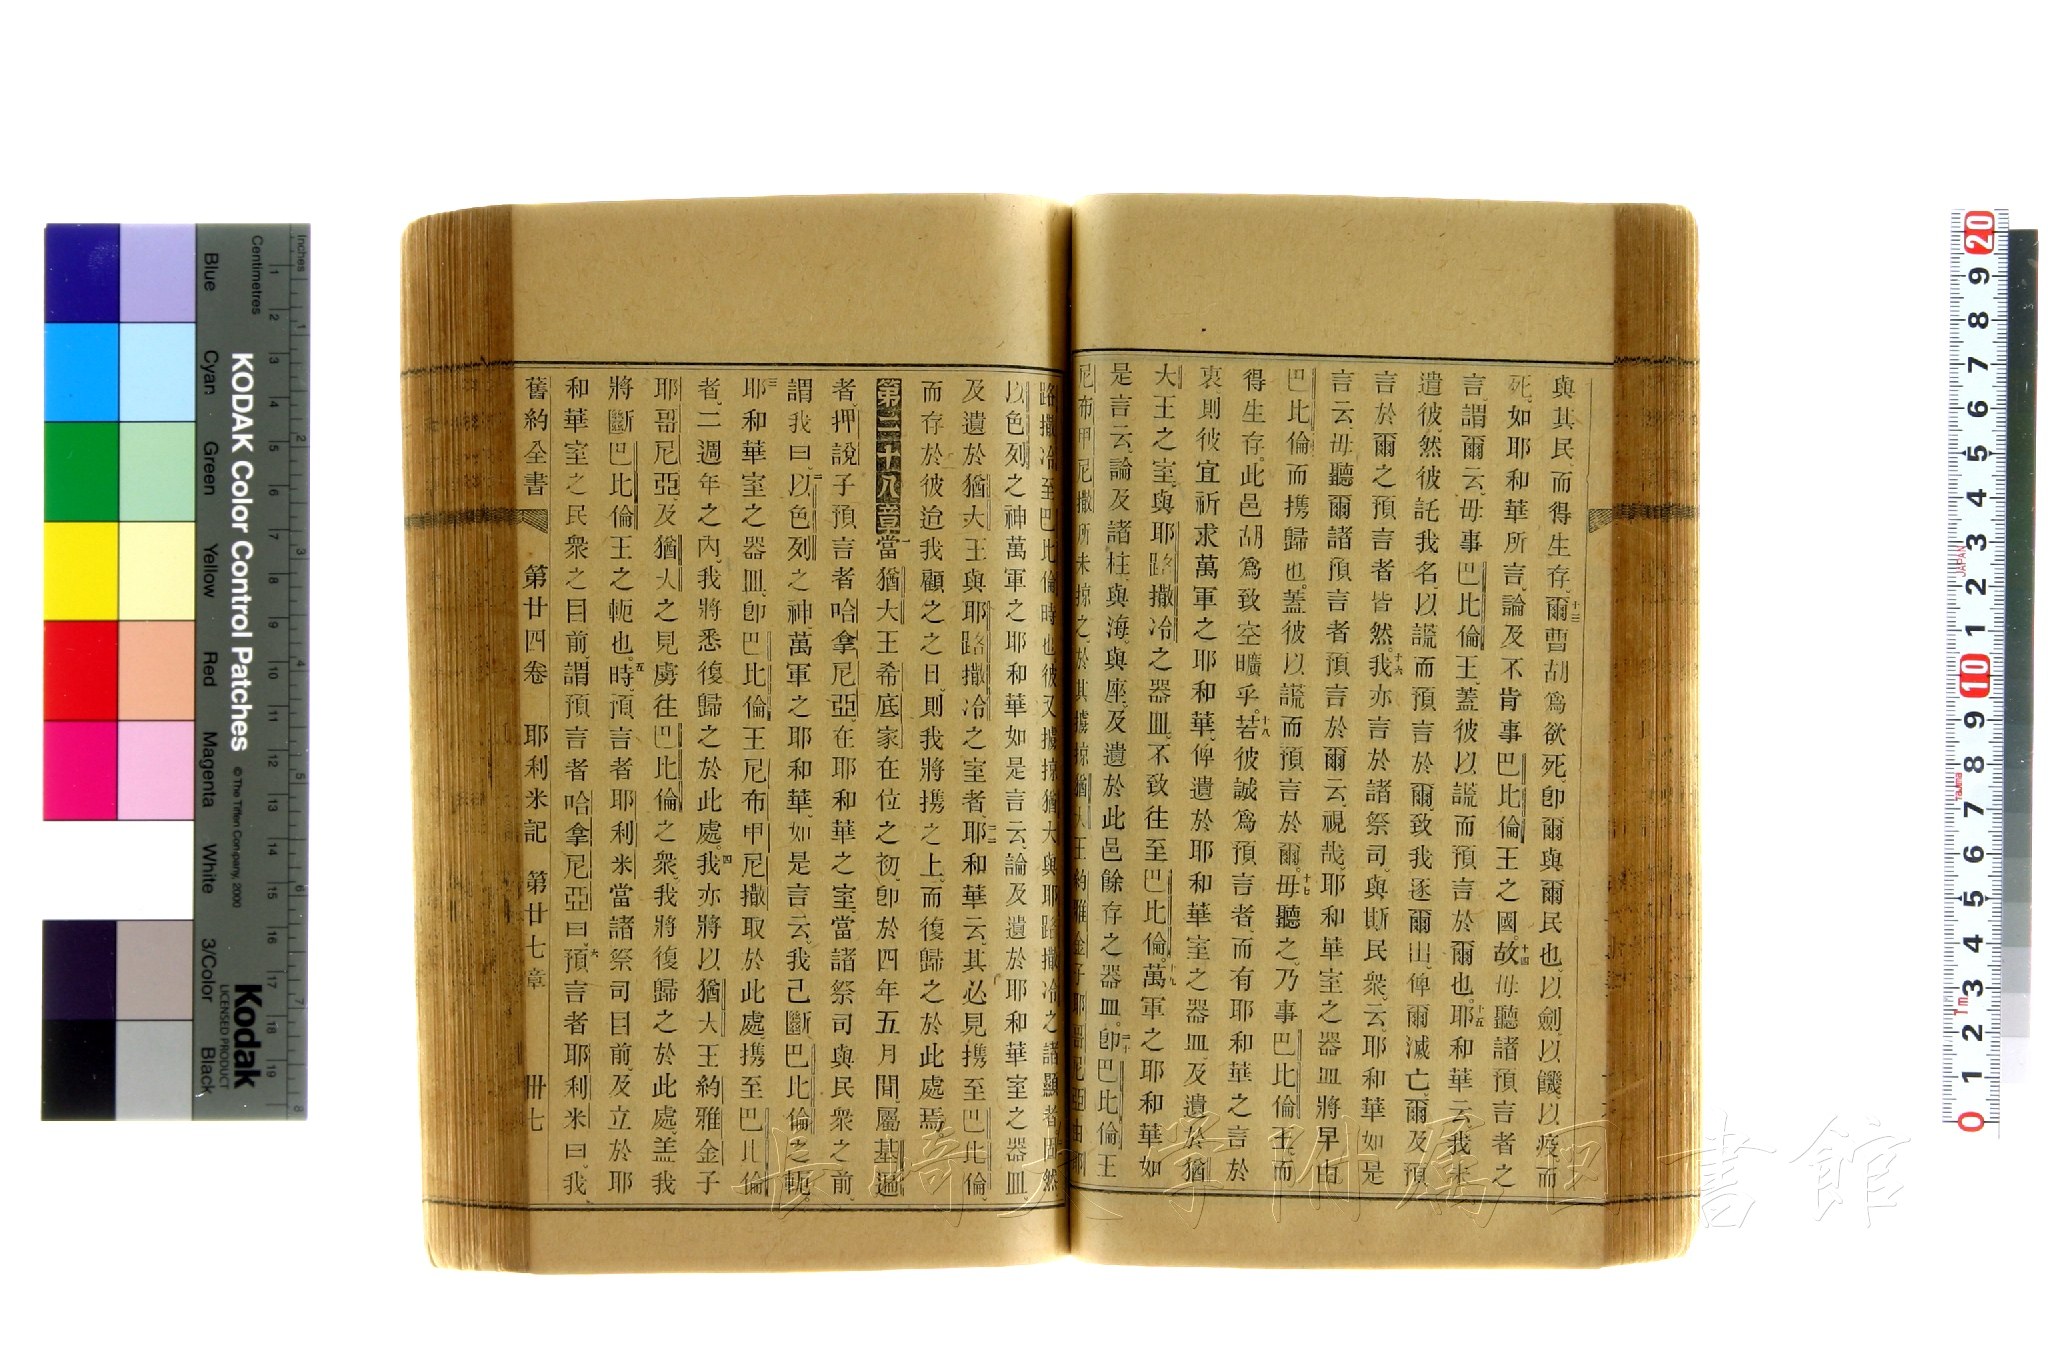 與其民、而得生存。十三爾曹胡爲欲死、卽爾與爾民也、以劍、以饑、以疫、而
死、如耶和華所言、論及不肯事巴比倫王之國。十四故毋聽諸預言者之
言、謂爾云、毋事巴比倫王、蓋彼以謊而預言於爾也。十五耶和華云、我未
遣彼、然彼託我名、以謊而預言於爾、致我逐爾出、俾爾滅亡、爾及預
言於爾之預言者皆然。十六我亦言於諸祭司、與斯民衆、云、耶和華如是
言云、毋聽爾諸預言者預言於爾云、視哉、耶和華室之器皿將早由
巴比倫而携歸也。蓋彼以謊而預言於爾。十七毋聽之、乃事巴比倫王、而
得生存。此邑胡爲致空曠乎。十八若彼誠爲預言者、而有耶和華之言於
衷、則彼宜祈求萬軍之耶和華、俾遺於耶和華室之器皿、及遺於猶
大王之室、與耶路撒冷之器皿、不致往至巴比倫。十九萬軍之耶和華如
是言云、論及諸柱、與海、與座、及遺於此邑餘存之器皿。二十卽巴比倫王
尼布甲尼撒所未掠之、於其擄掠猶大王約雅金子耶哥尼亞由耶
路撒冷至巴比倫時也、彼又擄掠猶大與耶路撒冷之諸顯者。固然
以色列之神萬軍之耶和華如是言云、論及遺於耶和華室之器皿、
及遺於猶大王與耶路撒冷之室者、二二耶和華云、其必見携至巴比倫、
而存於彼、迨我顧之之日、則我將携之上、而復歸之於此處焉。
第二十八章 一當猶大王希底家在位之初、卽於四年五月間、屬基遍
者、押說子預言者哈拿尼亞、在耶和華之室、當諸祭司與民衆之前、
謂我曰、二以色列之神、萬軍之耶和華、如是言云、我已斷巴比倫之軛。
三耶和華室之器皿、卽巴比倫王尼布甲尼撒取於此處、携至巴比倫
者、二週年之內、我將悉復歸之於此處。四我亦將以猶大王約雅金子
耶哥尼亞、及猶大之見虜往巴比倫之衆、我將復歸之於此處、蓋我
將斷巴比倫王之軛也。五時、預言者耶利米當諸祭司目前、及立於耶
和華室之民衆之目前、謂預言者哈拿尼亞曰、六預言者耶利米曰、我、
舊約全書 第廿四卷 耶利米記 第廿七章 卅七
長崎大学附属図書館
KODAK Color Control Patches
© The Tiffen Company, 2000
Kodak
LICENSED PRODUCT
Inches
Centimetres
Blue
Cyan
Green
Yellow
Red
Magenta
White
3/Color
Black
1 2 3 4 5 6 7 8
1 2 3 4 5 6 7 8 9 10 11 12 13 14 15 16 17 18 19
20 9 8 7 6 5 4 3 2 1 10 9 8 7 6 5 4 3 2 1 0
JAPAN
Tajima
1m